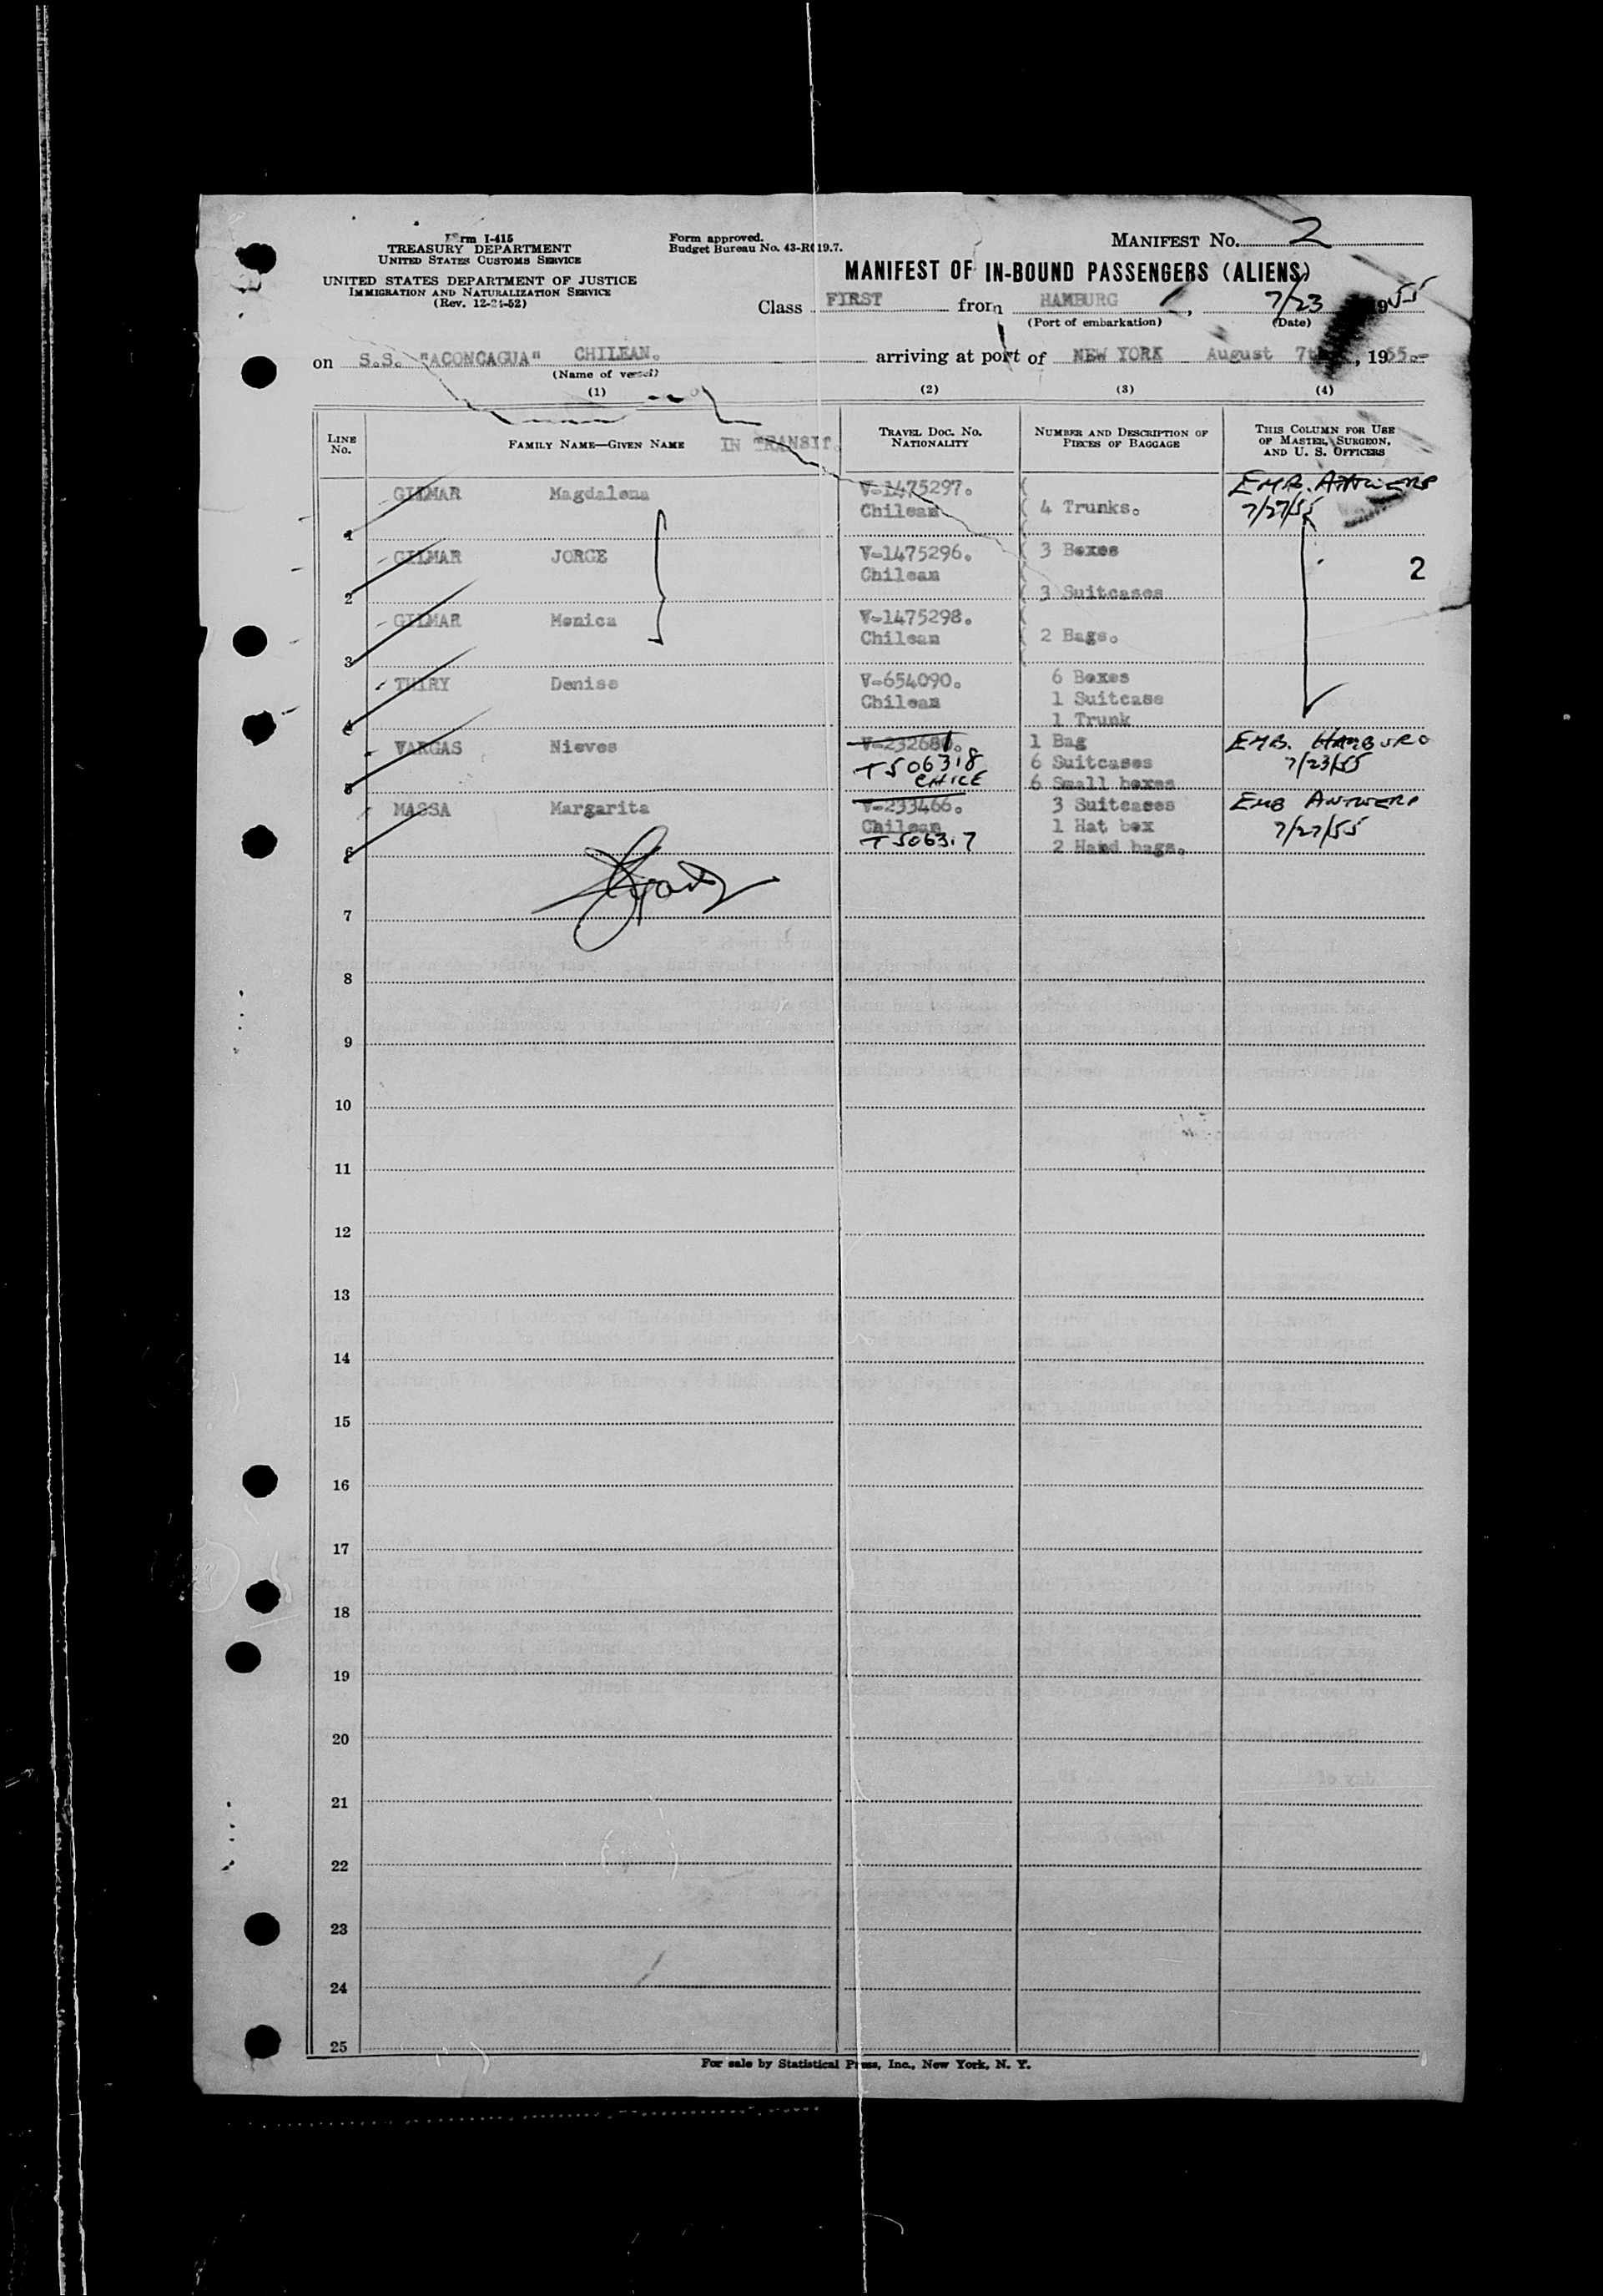 Form I-415
TREASURY DEPARTMENT
UNITED STATES CUSTOMS SERVICE
UNITED STATES DEPARTMENT OF JUSTICE
IMMIGRATION AND NATURALIZATION SERVICE
(Rev. 12-24-52)
Form approved.
Budget Bureau No. 43-R019.7.
MANIFEST NO. 2
MANIFEST OF IN-BOUND PASSENGERS (ALIENS)
Class FIRST from HAMBURG, 7/23 1955
(Port of embarkation) (Date)
on S.S. "ACONCAGUA" CHILEAN. arriving at port of NEW YORK August 7th, 1955.-
(Name of vessel)
(1) (2) (3) (4)
LINE NO.
FAMILY NAME—GIVEN NAME IN TRANSIT.
TRAVEL DOC. NO. NATIONALITY
NUMBER AND DESCRIPTION OF PIECES OF BAGGAGE
THIS COLUMN FOR USE OF MASTER, SURGEON, AND U. S. OFFICERS
1 GILMAR Magdalena V-1475297. Chilean 4 Trunks. EMB. ANTWERP 7/27/55
2 GILMAR JORGE V-1475296. Chilean 3 Boxes 3 Suitcases 2
3 GILMAR Monica V-1475298. Chilean 2 Bags.
4 THIRY Denise V-654090. Chilean 6 Boxes 1 Suitcase 1 Trunk
5 VARGAS Nieves V-232680. T506318 CHILE 1 Bag 6 Suitcases 6 Small boxes EMB. HAMBURG 7/23/55
6 MASSA Margarita V-233466. Chilean T506317 3 Suitcases 1 Hat box 2 Hand bags. EMB ANTWERP 7/27/55
7
8
9
10
11
12
13
14
15
16
17
18
19
20
21
22
23
24
25
For sale by Statistical Press, Inc., New York, N. Y.